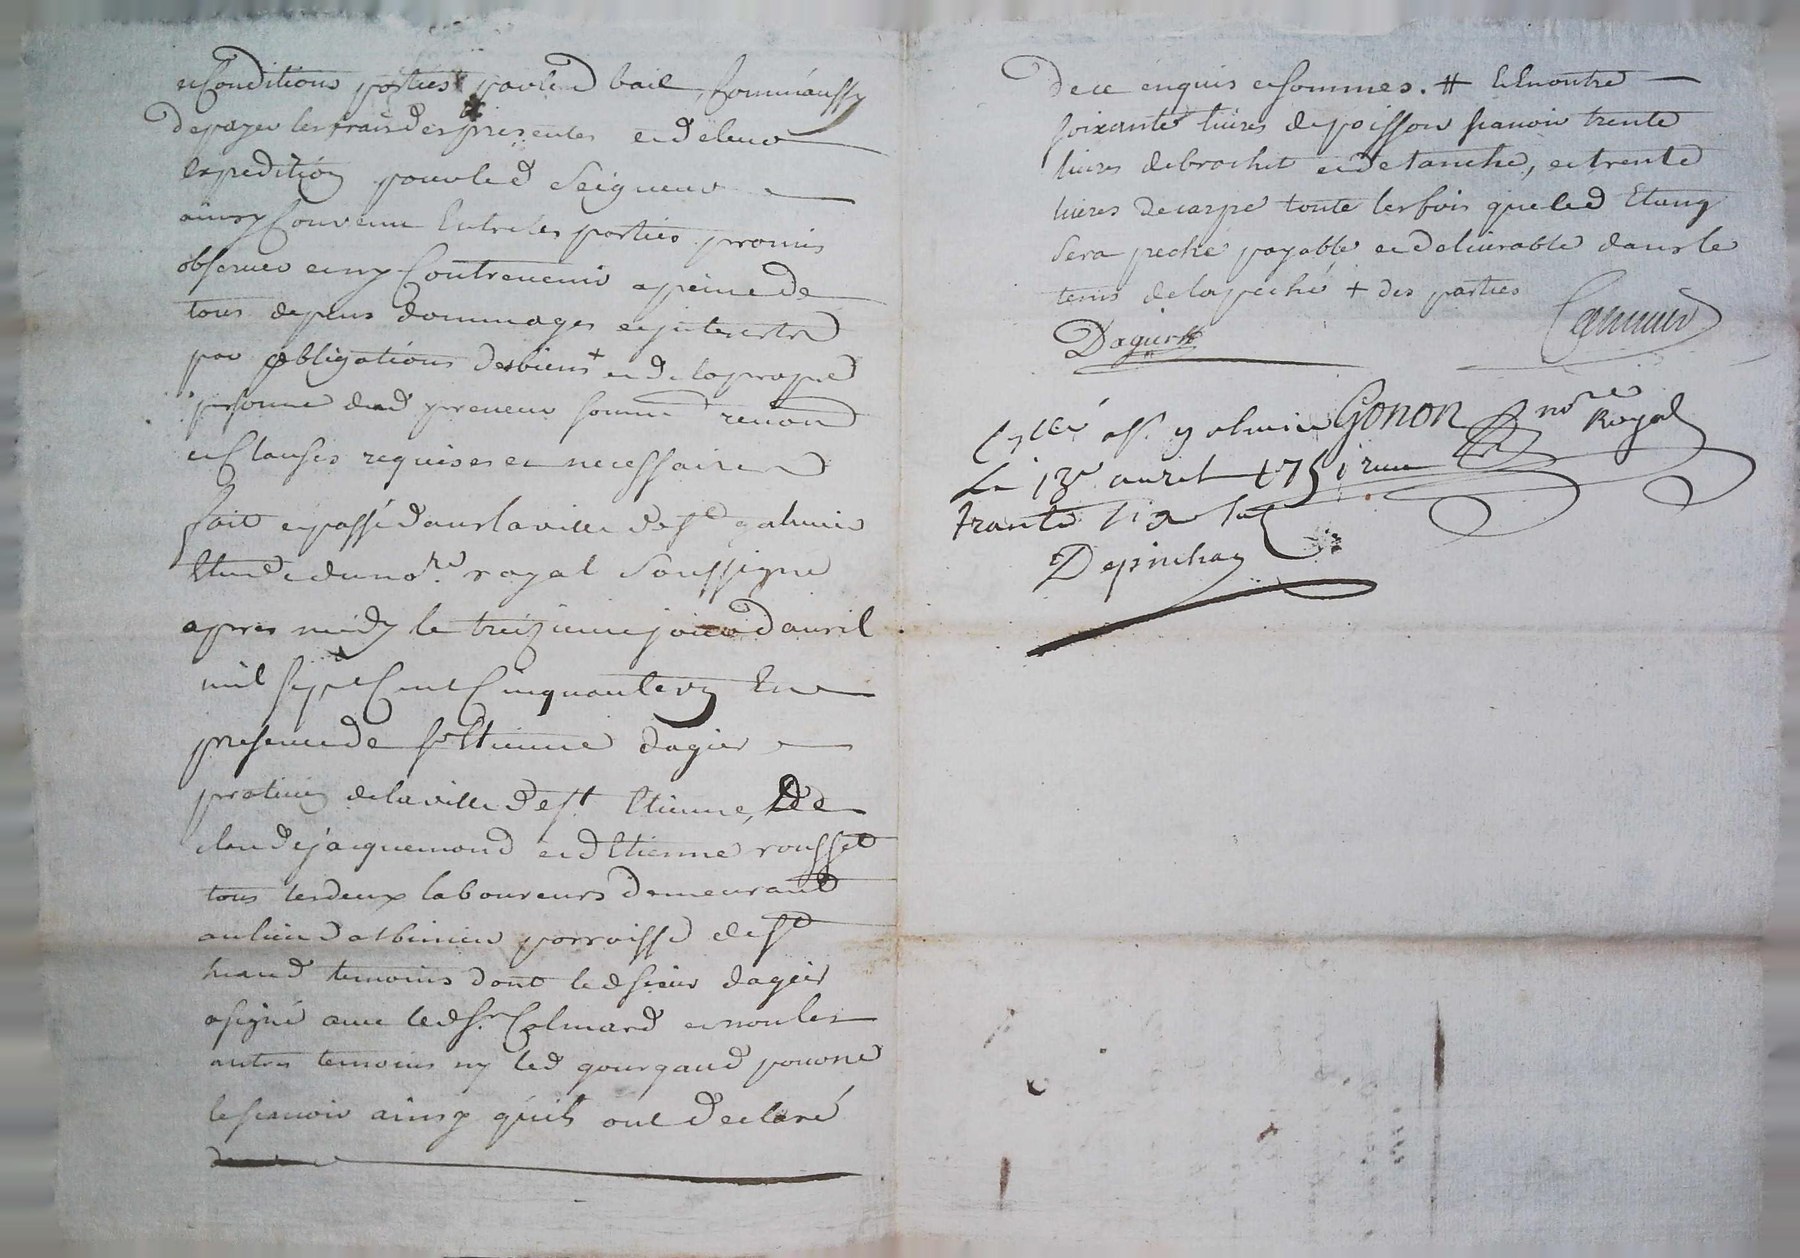 et Conditions portées par led bail, Comme aussy
de payer les frais des presentes et de leur
Expedition pour led Seigneur
ainsy Convenu Entre les parties promis
observer et ny Contrevenir a peine de
tous depens dommages et interests
par obligations des biens + et de la propre
personne dud preneur soumis renon
et Clauses requises et necessaires
fait et passé dans la ville de st galmier
Etude du no.re royal soussigné
apres midy le treizieme jour d'avril
mil sept Cent Cinquante un En
presence de sr Etienne dagier
praticien de la ville de st Etienne, de
claude jacquemond et d'Etienne rousset
tous les deux laboureurs demeurant
au lieu d'albinieu parroisse de st
heand temoins dont led sieur dagier
a signé avec led sr. Colmard et non les
autres temoins ny led gourgaud pour ne
le scavoir ainsy qu'ils ont declaré
de ce enquis et sommes. # Et En outre
soixante livres de poisson scavoir trente
livres de brochet et de tanche, et trente
livres de carpe toute les fois que led Etang
sera peché payable et delivrable dans le
tems de la peche + des parties
Dagier
Gonon nore Royal
Le 13e avril 1751 recu
trante six sol
Depinhay